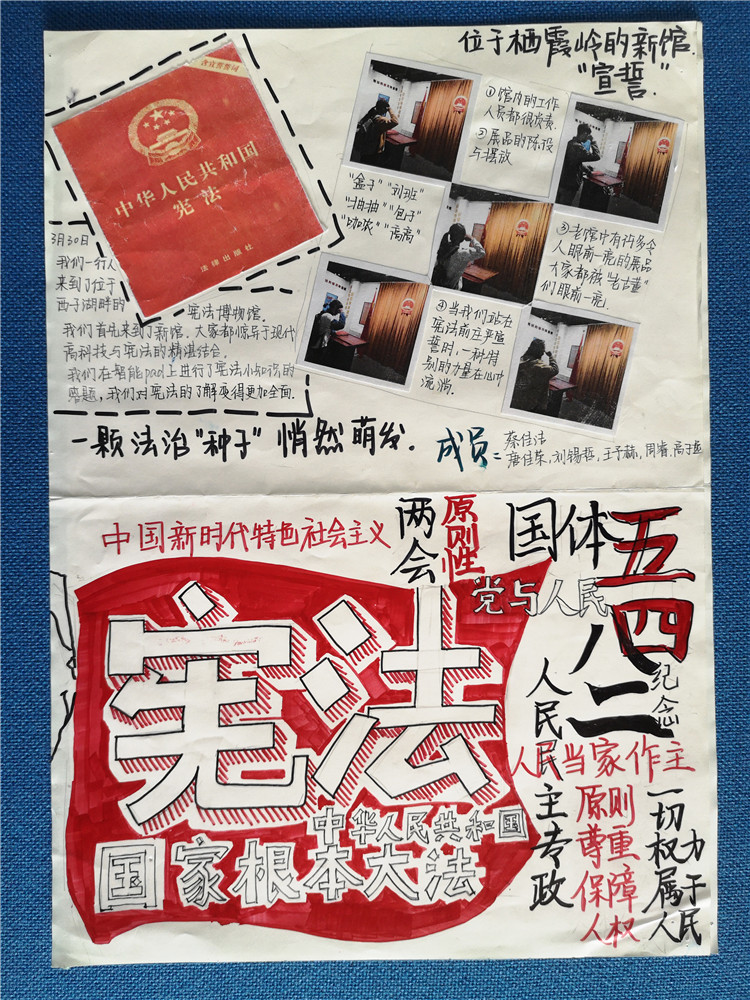 位于栖霞岭的新馆
"宣誓".
含宣誓誓词
中华人民共和国
宪法
法律出版社
①馆内的工作
人员都很负责.
②展品的陈设
与摆放
"盒子""刘班"
"抽抽""包子"
"咖灰""高高"
③老馆中有许多令
人眼前一亮的展品
大家都被"老古董"
们眼前一亮.
④当我们站在
宪法前庄严宣
誓时,一种特
别的力量在心中
流淌.
3月30日
我们一行人
来到了位于
西子湖畔的 宪法博物馆.
我们首先来到了新馆.大家都惊异于现代
高科技与宪法的精湛结合.
我们在智能pad上进行了宪法小知识的
答题,我们对宪法的了解变得更加全面.
一颗法治"种子"悄然萌发.
成员:
蔡佳洁
唐佳荣,刘锡哲,王予赫,周睿,高子
中国新时代特色社会主义
两会
原则性
国体
五四
八二
纪念
党与人民
宪法
中华人民共和国
国家根本大法
人民民主专政
人民当家作主
原则
尊重
保障
人权
一切
权力
属于
人民